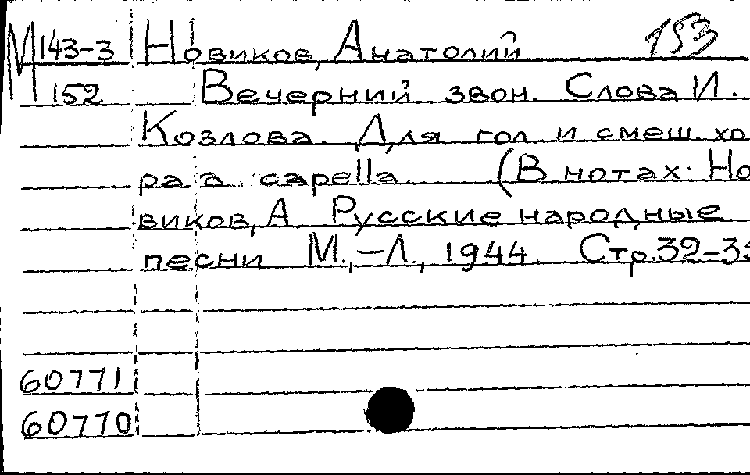 М 143-3 Новиков, Анатолий 153
152 Вечерний звон. Слова И.
Козлова Для гол и смеш хо
ра a capella (В нотах: Но
виков, А Русские народные
песни М.,-Л., 1944. Стр. 32-3
60771
60770